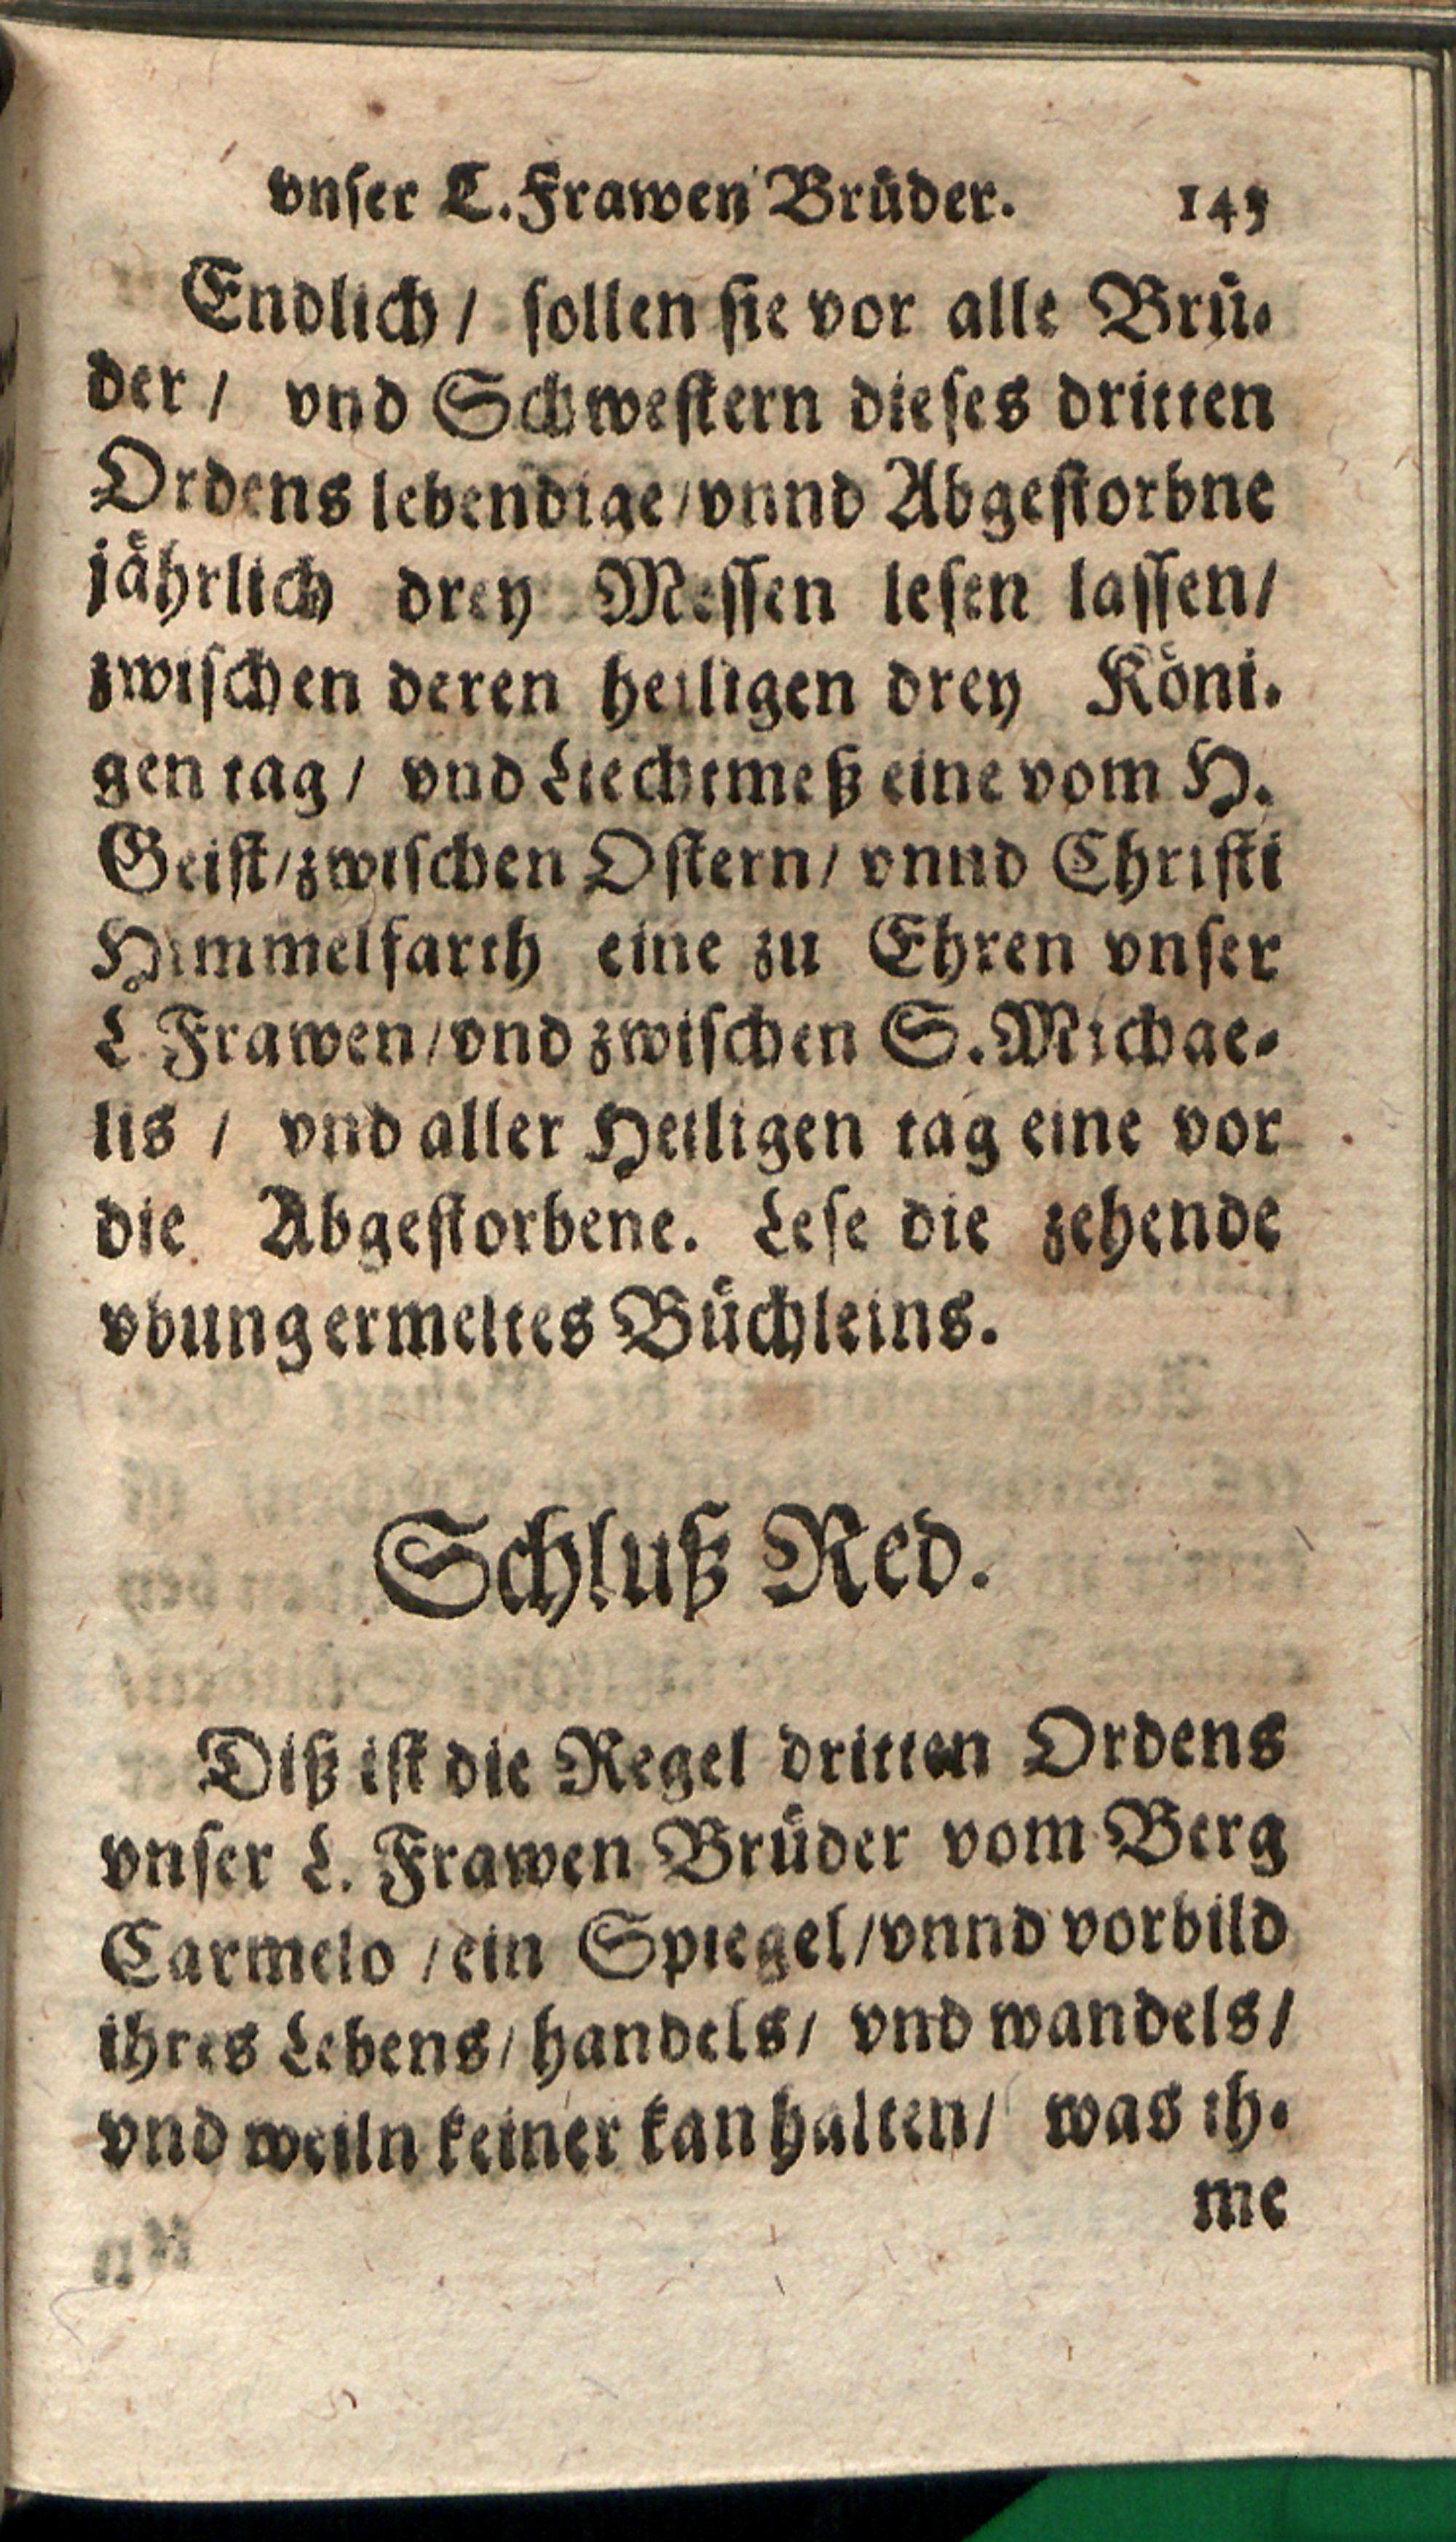 vnser L. Frawen Brüder. 145
Endlich / sollen sie vor alle Brü-
der / vnd Schwestern dieses dritten
Ordens lebendige / vnnd Abgestorbne
jährlich drey Messen lesen lassen /
zwischen deren heiligen drey Köni-
gen tag / vnd Liechtmeß eine vom H.
Geist / zwischen Ostern / vnnd Christi
Himmelfarth eine zu Ehren vnser
L Frawen / vnd zwischen S. Michae-
lis / vnd aller Heiligen tag eine vor
die Abgestorbene. Lese die zehende
vbung ermeltes Büchleins.
Schluß Red.
Diß ist die Regel dritten Ordens
vnser L. Frawen Brüder vom Berg
Carmelo / ein Spiegel / vnnd vorbild
ihres Lebens / handels / vnd wandels /
vnd weiln keiner kan halten / was ih-
me